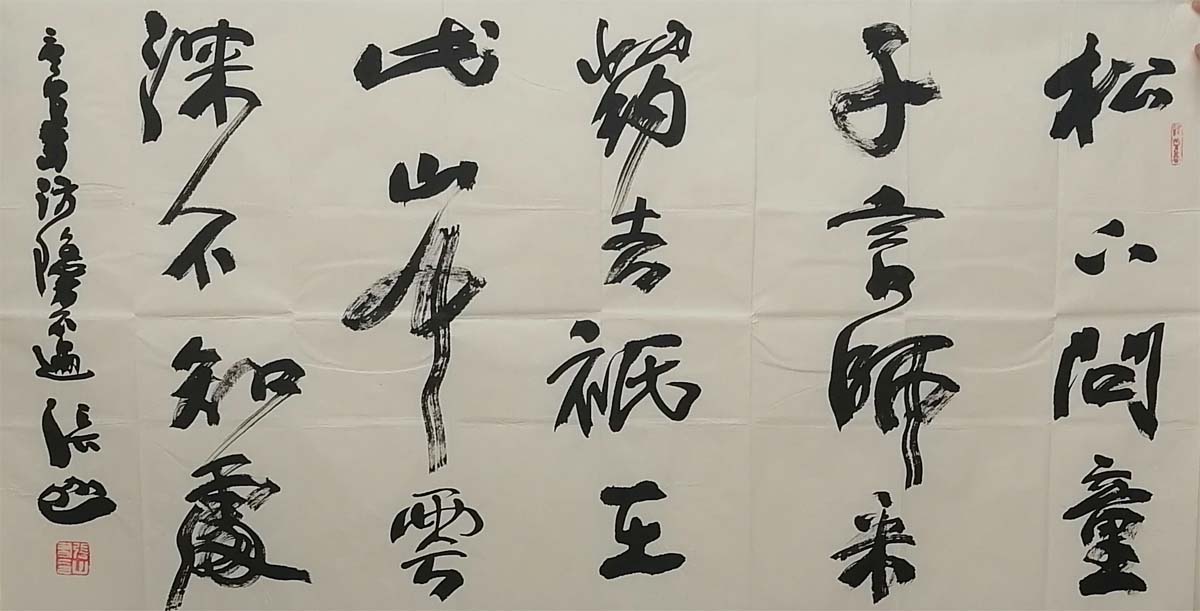 松下問童
子言師采
葯去祇在
此山中雲
深不知處
賈島訪隱不遇 張山